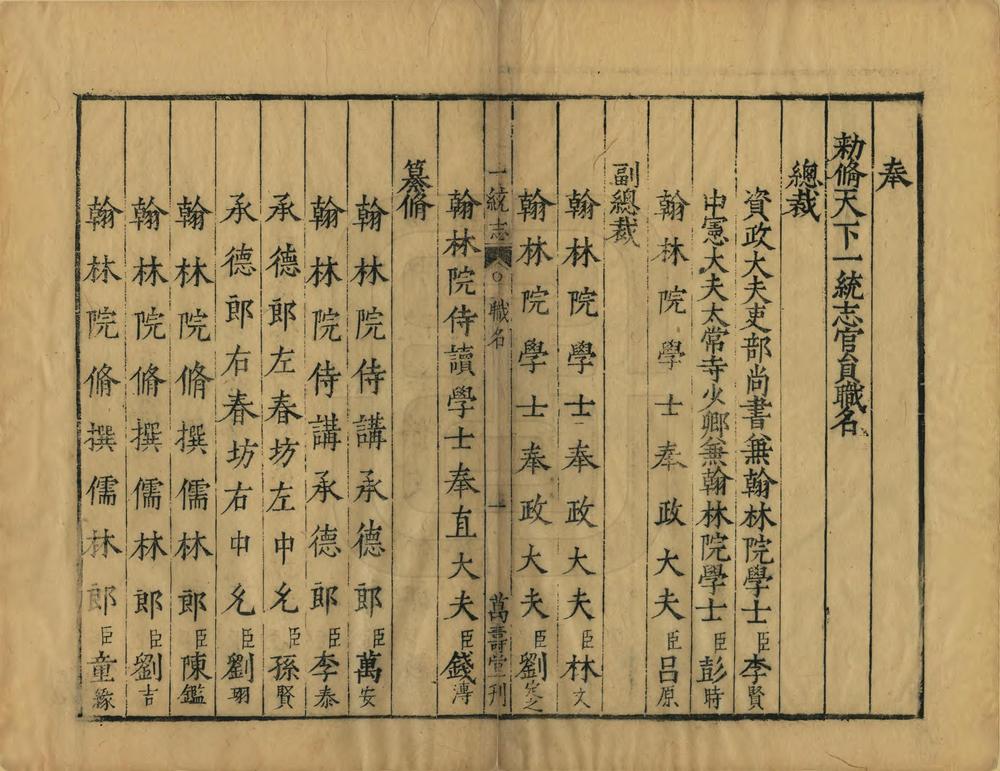 奉
勑脩天下一統志官員職名
總裁
資政大夫吏部尚書兼翰林院學士臣李賢
中憲大夫太常寺少卿兼翰林院學士臣彭時
翰林院學士奉政大夫臣吕原
副總裁
翰林院學士奉政大夫臣林文
翰林院學士奉政大夫臣劉定之
翰林院侍讀學士奉直大夫臣錢溥
一統志 職名 一 萬壽堂刊
纂脩
翰林院侍講承德郎臣萬安
翰林院侍講承德郎臣李泰
承德郎左春坊左中允臣孫賢
承德郎右春坊右中允臣劉珝
翰林院脩撰儒林郎臣陳鑑
翰林院脩撰儒林郎臣劉吉
翰林院脩撰儒林郎臣童緣